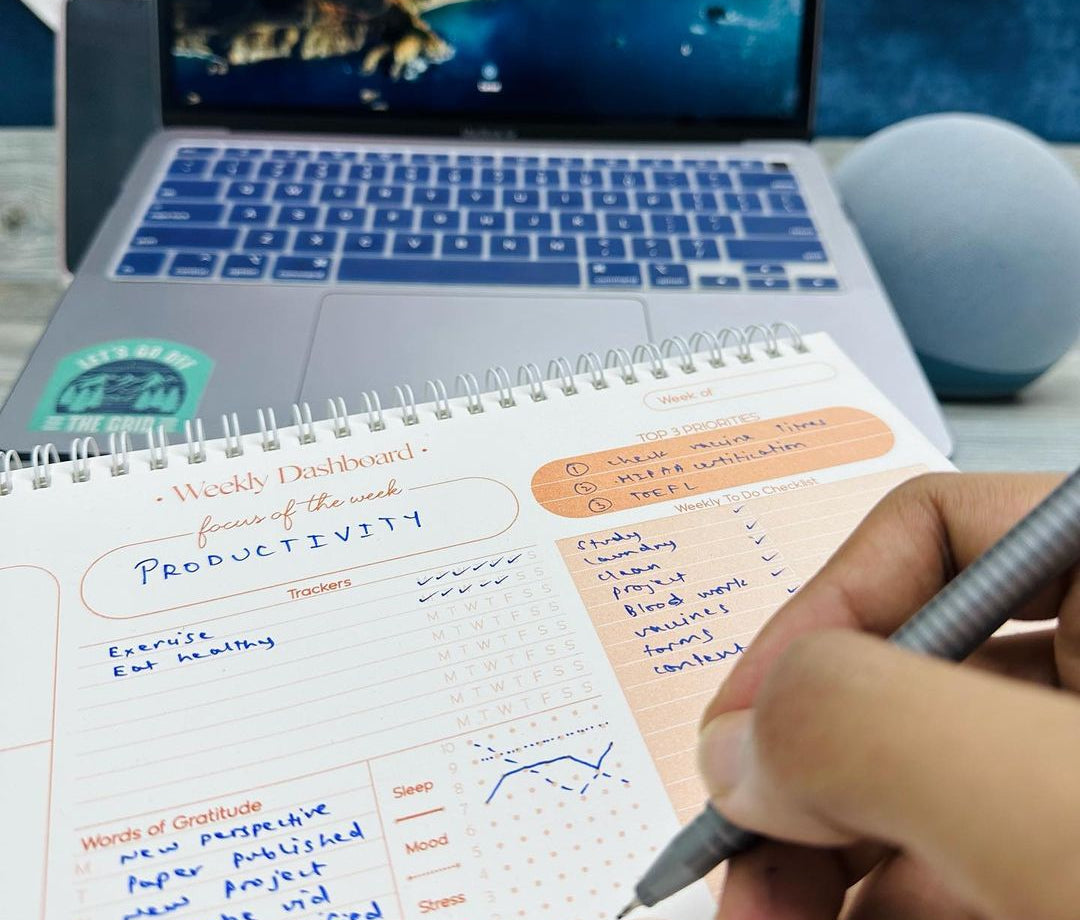 LET'S GO OFF
THE GRID
Weekly Dashboard
focus of the week
PRODUCTIVITY
Trackers
S
S S
Exercise
M T W T F S S
Eat healthy
M T W T F S S
M T W T F S S
M T W T F S S
M T W T F S S
Week of
TOP 3 PRIORITIES
1 check vaccine titres
2 HIPAA certification
3 TOEFL
Weekly To Do Checklist
Study
Laundry
clean
project
Blood work
vaccines
forms
content
Words of Gratitude
M New perspective
T Paper published
New project
vid
Sleep
Mood
Stress
10
9
8
7
6
5
4
3